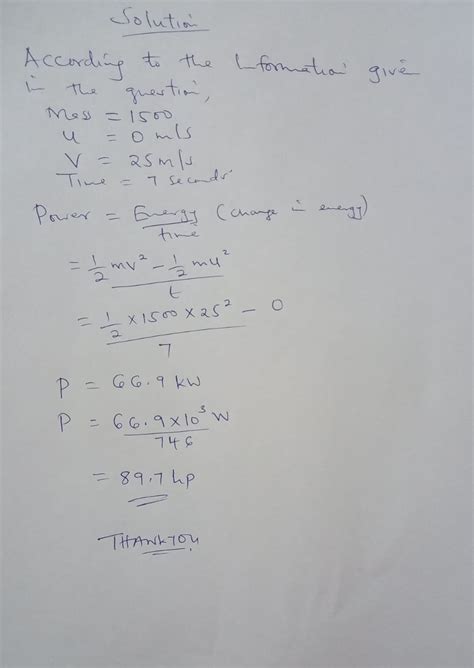 Solution
According to the Information given
in the question,
Mass = 1500
u = 0 m/s
V = 25m/s
Time = 7 seconds
Power = Energy (change in energy)
time
= 1/2 mv² - 1/2 mu²
t
= 1/2 × 1500 × 25² - 0
7
P = 66.9 kW
P = 66.9 × 10³ W
746
= 89.7 hp
THANK YOU